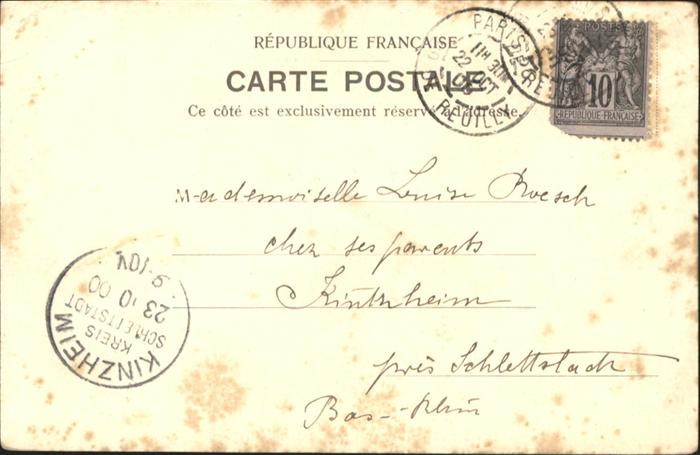 RÉPUBLIQUE FRANÇAISE
CARTE POSTALE
Ce côté est exclusivement réservé à l'adresse.
PARIS
11H 30
22 OCT
REUILLY
10
RÉPUBLIQUE FRANÇAISE
Mademoiselle Louise Roesch
chez ses parents
Kintzheim
près Schlettstadt
Bas-Rhin
KINZHEIM
KREIS
SCHLETTSTADT
23 10 00